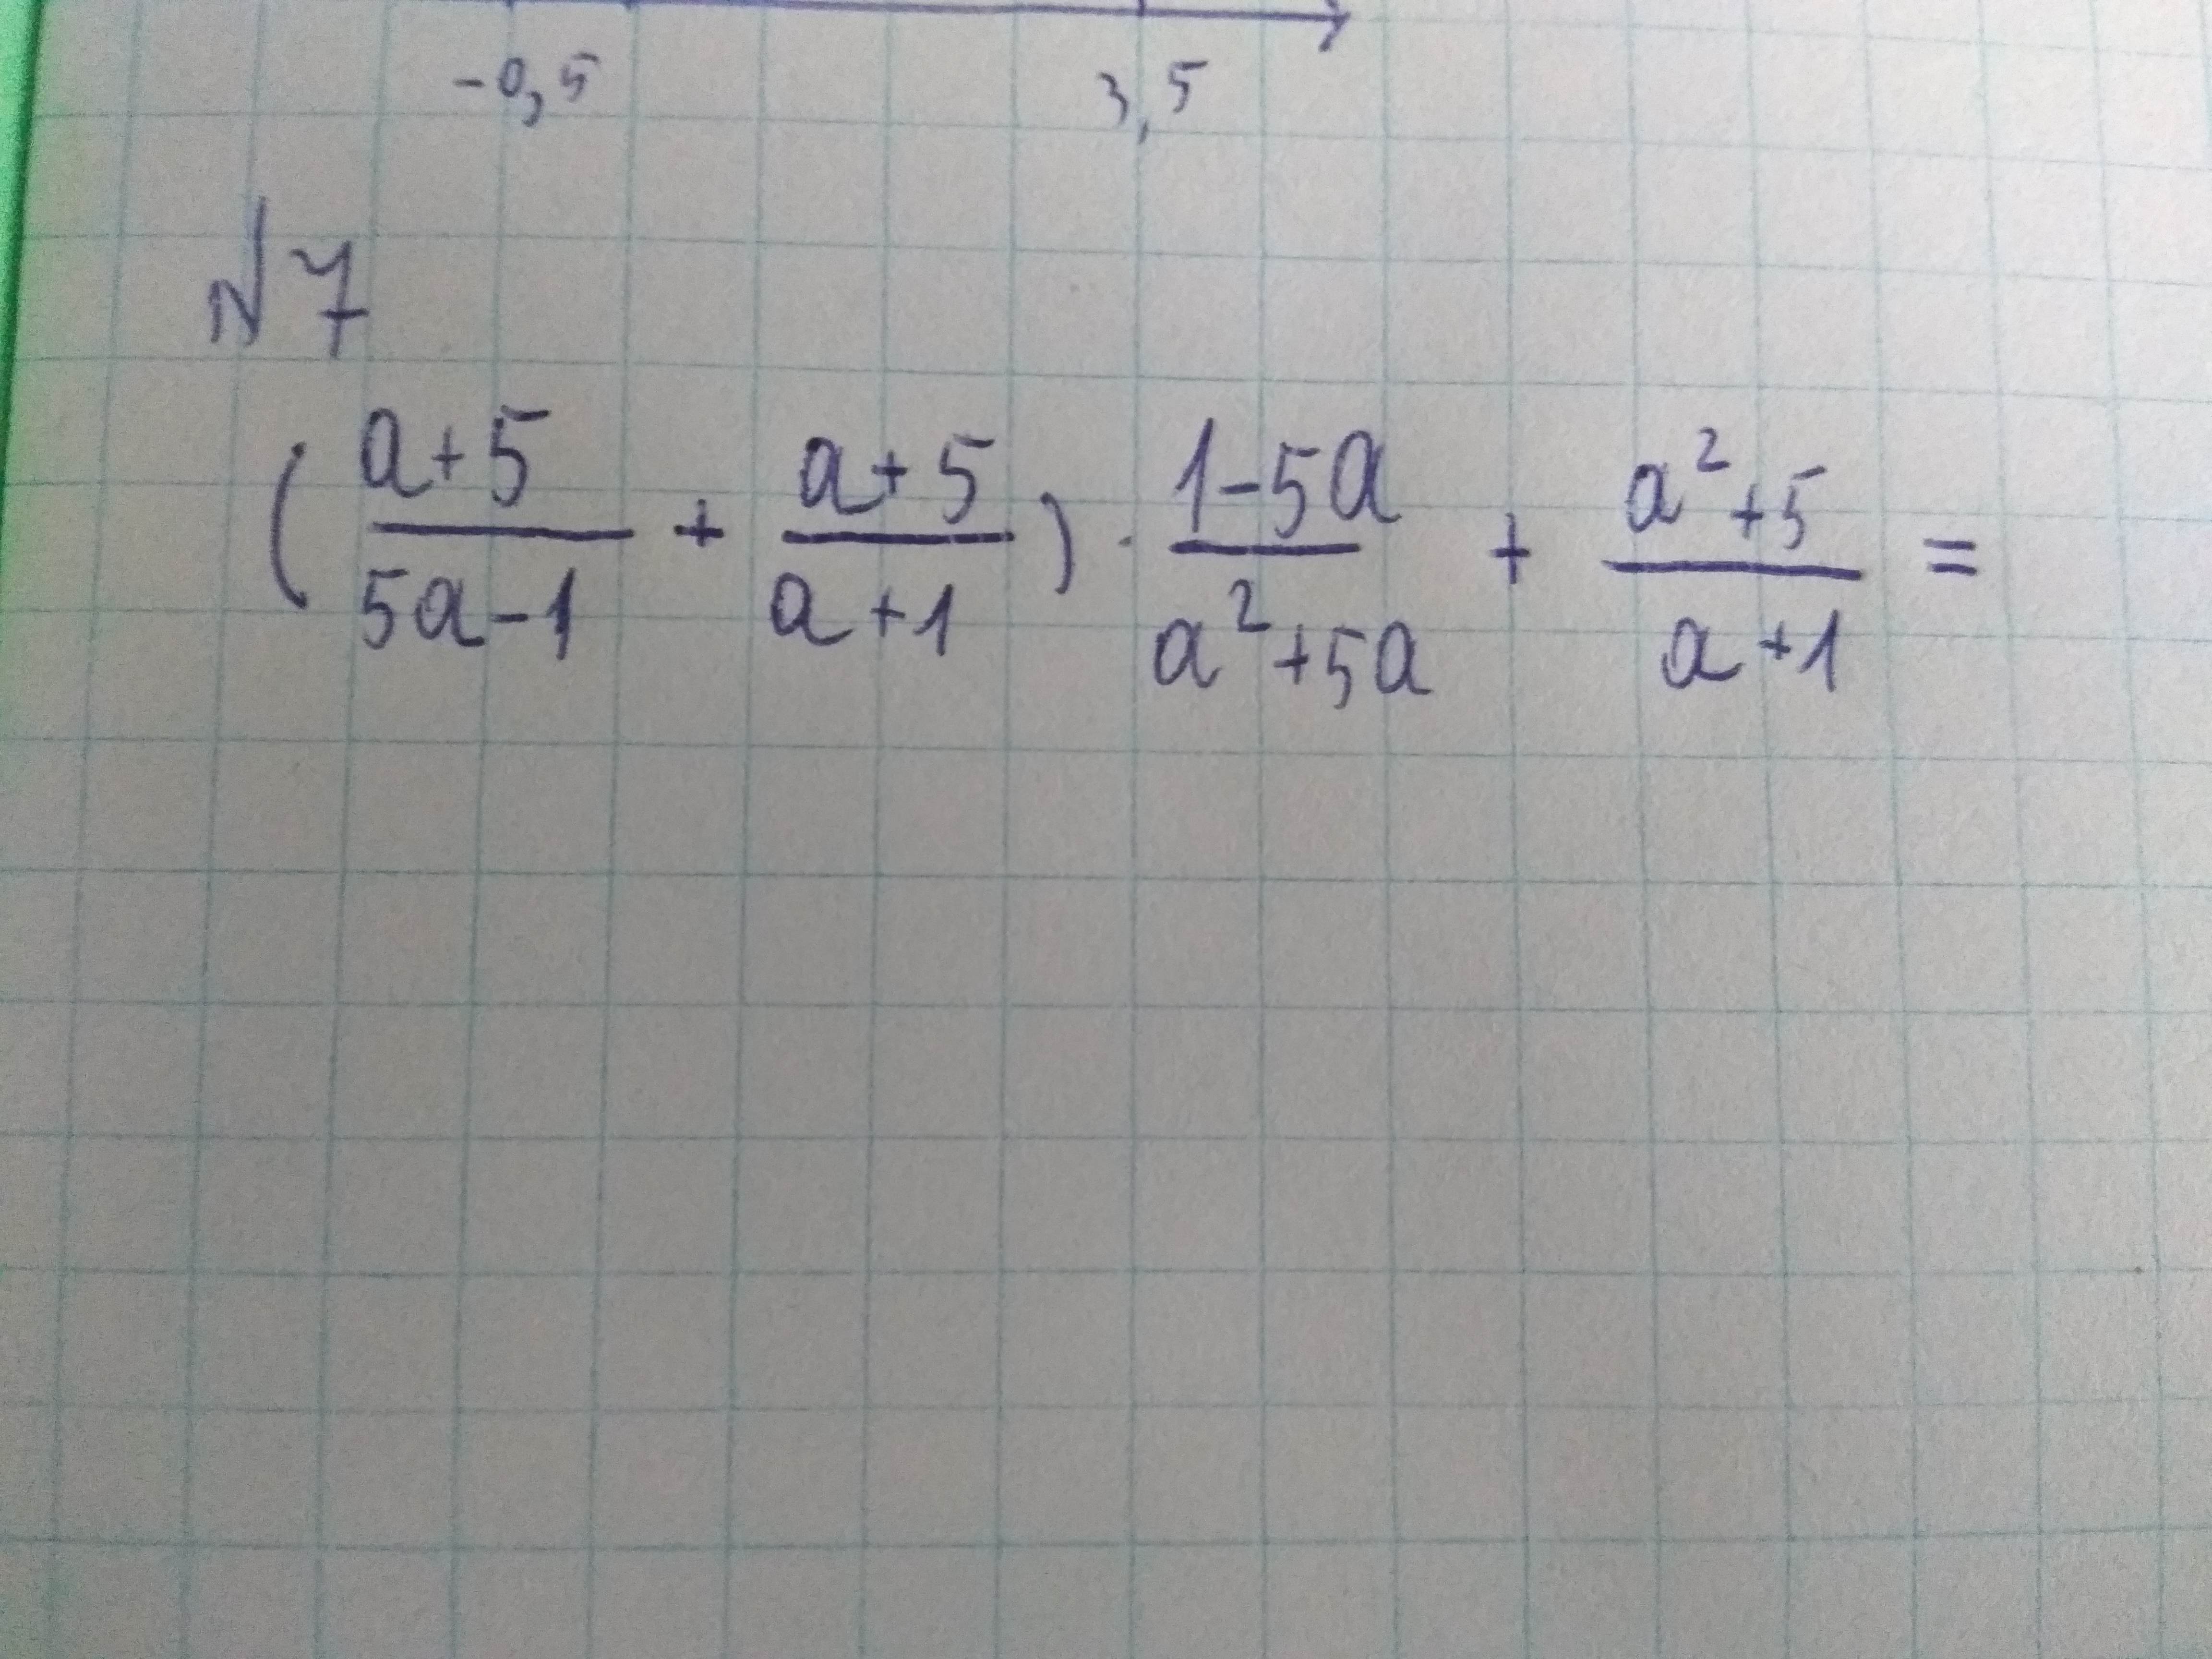 -0,5 3,5
№7
( (a+5)/(5a-1) + (a+5)/(a+1) ) · (1-5a)/(a²+5a) + (a²+5)/(a+1) =